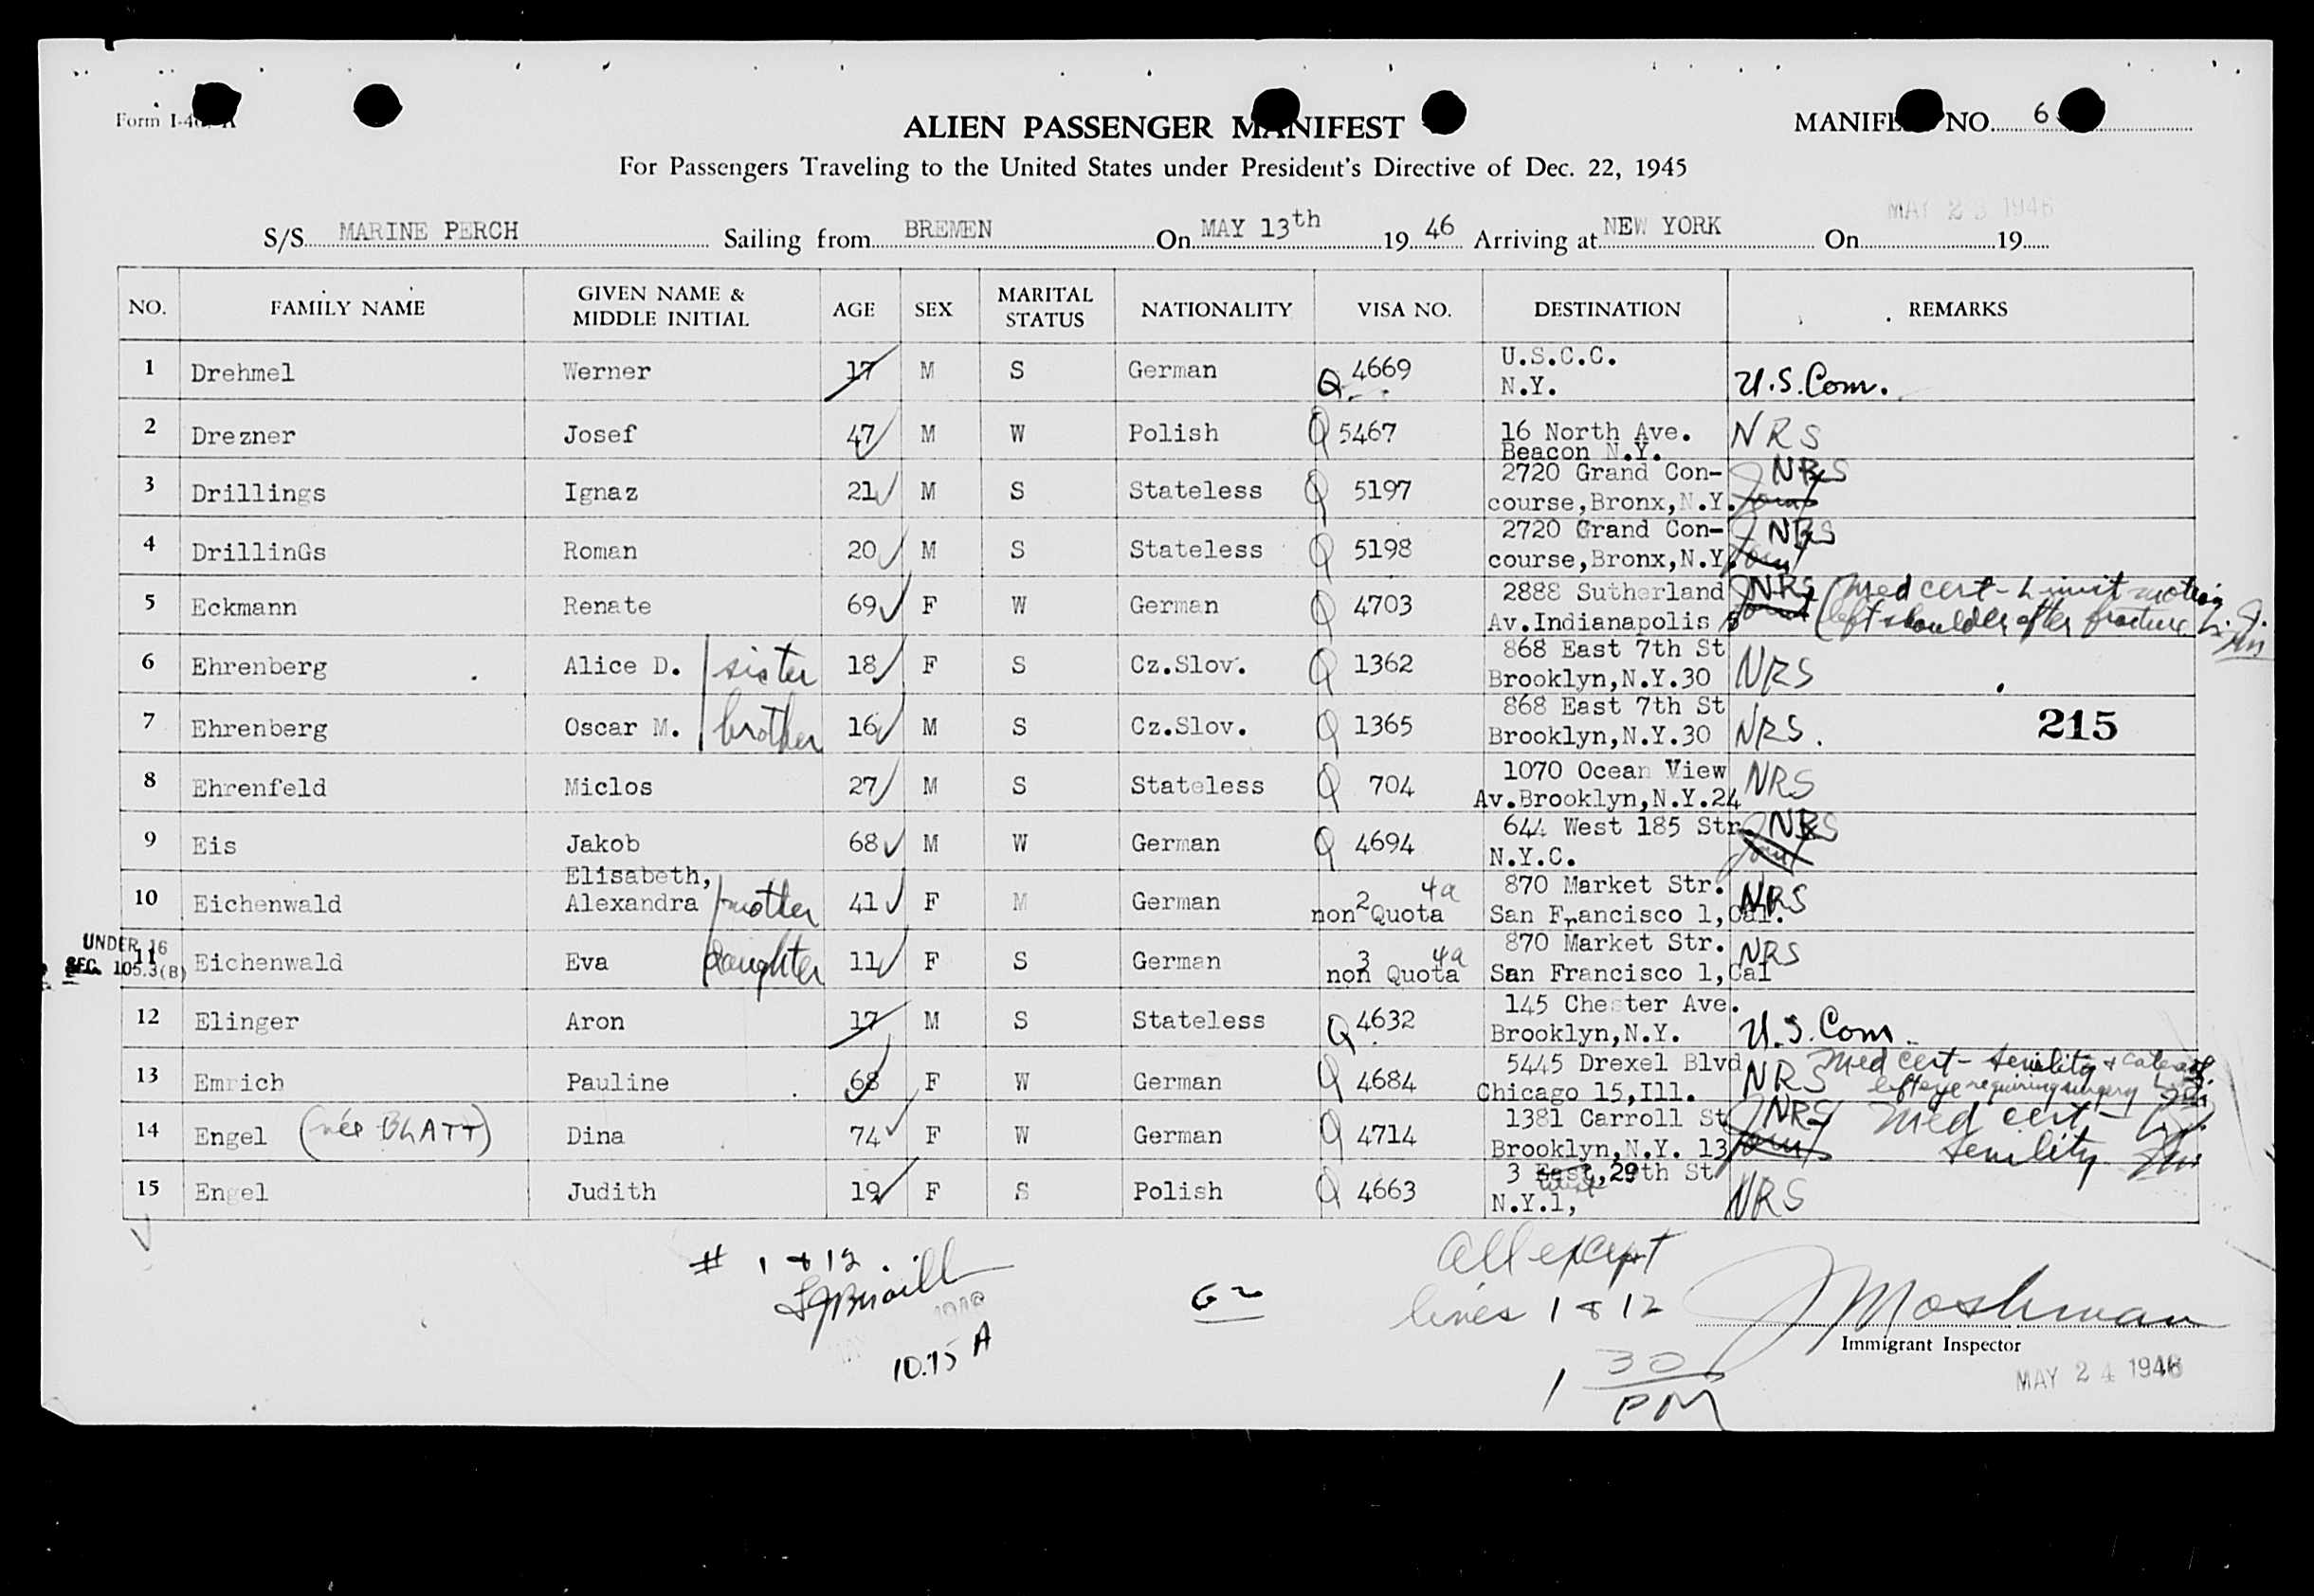 Form I-4
ALIEN PASSENGER MANIFEST
MANIFEST NO. 6
For Passengers Traveling to the United States under President's Directive of Dec. 22, 1945
MAY 23 1946
S/S MARINE PERCH Sailing from BREMEN On MAY 13th 1946 Arriving at NEW YORK On 19
NO. FAMILY NAME GIVEN NAME & MIDDLE INITIAL AGE SEX MARITAL STATUS NATIONALITY VISA NO. DESTINATION REMARKS
1 Drehmel Werner 17 M S German Q 4669 U.S.C.C. N.Y. U.S. Com.
2 Drezner Josef 47 M W Polish Q 5467 16 North Ave. Beacon N.Y. NRS
3 Drillings Ignaz 21 M S Stateless Q 5197 2720 Grand Con-course,Bronx,N.Y. NRS
4 DrillinGs Roman 20 M S Stateless Q 5198 2720 Grand Con-course,Bronx,N.Y. NRS
5 Eckmann Renate 69 F W German Q 4703 2888 Sutherland Av.Indianapolis NRS Med cert - Limit motion left shoulder after fracture
6 Ehrenberg Alice D. sister 18 F S Cz.Slov. Q 1362 868 East 7th St Brooklyn,N.Y.30 NRS
7 Ehrenberg Oscar M. brother 16 M S Cz.Slov. Q 1365 868 East 7th St Brooklyn,N.Y.30 NRS. 215
8 Ehrenfeld Miclos 27 M S Stateless Q 704 1070 Ocean View Av.Brooklyn,N.Y.24 NRS
9 Eis Jakob 68 M W German Q 4694 644 West 185 Str. N.Y.C. NRS
10 Eichenwald Elisabeth, Alexandra mother 41 F M German 2 non Quota 4a 870 Market Str. San Francisco 1,Cal. NRS
UNDER 16 SEC. 105.3(B)
11 Eichenwald Eva daughter 11 F S German 3 non Quota 4a 870 Market Str. San Francisco 1,Cal NRS
12 Elinger Aron 17 M S Stateless Q 4632 145 Chester Ave. Brooklyn,N.Y. U.S. Com.
13 Emrich Pauline 68 F W German Q 4684 5445 Drexel Blvd Chicago 15,Ill. NRS Med cert - senility & left eye requiring surgery
14 Engel (née BLATT) Dina 74 F W German Q 4714 1381 Carroll St Brooklyn,N.Y. 13 NRS Med cert - senility
15 Engel Judith 19 F S Polish Q 4663 3 East, West 29th St N.Y.1, NRS
# 1 & 12
10.15 A
All except
lines 1 & 12
J Moshman
Immigrant Inspector
1 30 PM
MAY 24 1946